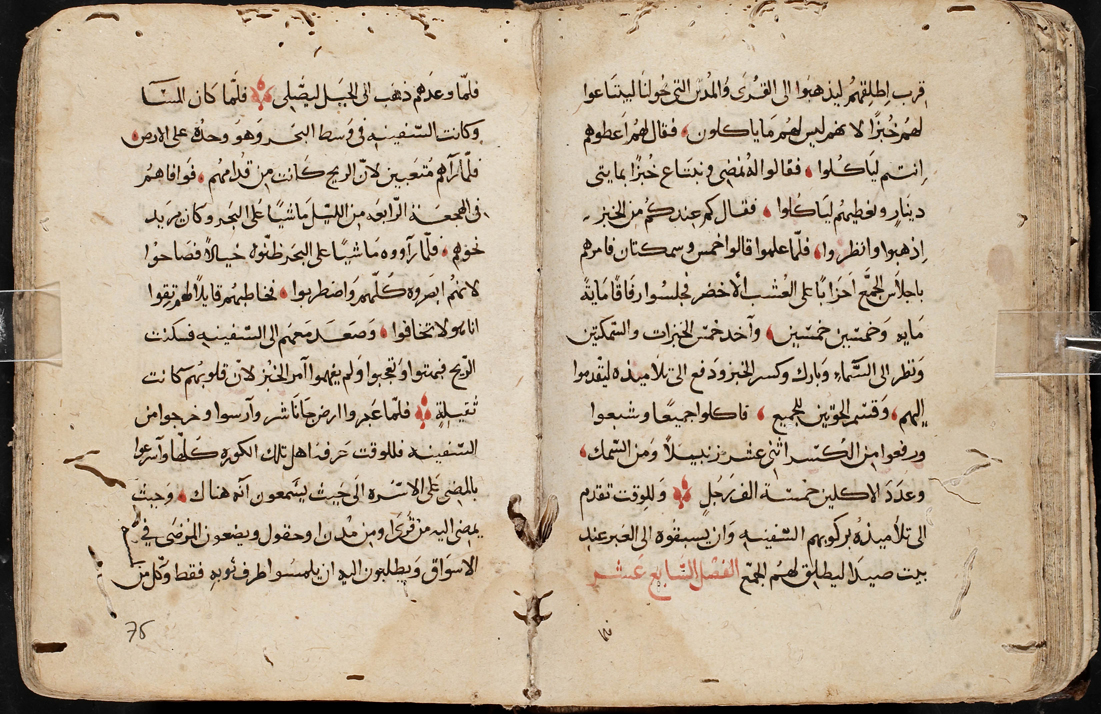 قرب اطلقهم ليذهبوا الى القرى والمدن التي حولنا ليبتاعوا
لهم خبزًا لانهم ليس لهم ما ياكلون فقال لهم اعطوهم
انتم لياكلوا فقالوا له نمضي ونبتاع خبزًا بمايتي
دينار ونعطيهم لياكلوا فقال كم عندكم من الخبز
اذهبوا وانظروا فلمّا علموا قالوا خمس وسمكتان فامرهم
باجلاس الجميع احزابًا على العشب الأخضر فجلسوا رفاقًا مايةً
مايه وخمسين خمسين واخد خمس الخبزات والسّمكتين
ونظر الى السّماء وبارك وكسر الخبز ودفع الى تلاميذه ليقدموا
اليهم وقسم الحوتين للجميع فاكلوا جميعًا وشبعوا
ورفعوا من الكسر اثني عشر زنبيلاً ومن السّمك
وعدد الاكلين خمسة الف رجلٍ وللوقت تقدم
الى تلاميذه بركوبهم السّفينه وان يسبقوه الى العبر عند
بيت صيدا ليطلق لهم الجمع الفصل السّابع عشر
فلمّا وعدهم ذهب الى الجبل ليصّلي فلمّا كان المسا
وكانت السّفينه في وسط البحر وهو وحده على الارض
فلمّا رآهم متعبين لانّ الريح كانت من قدامهم فوافاهم
في الهجعة الرّابعه من اللّيل ماشيًا على البحر وكان يريد
نحوهم فلمّا رآووه ماشيًا على البحر ظنّوه خيالاً فصاحوا
لانهم ابصروه كلّهم واضطربوا فخاطبهم قايلاً لهم ثقوا
انا هو لا تخافوا وصعد معهم الى السّفينه فسكنت
الرّيح فبهتوا وتعجبوا ولم يفهموا أمر الخبز لانّ قلوبهم كانت
ثقيلةٍ فلمّا عبروا ارض جاناشر وآرسوا وخرجوا من
السّفينه فللوقت عرفه اهل تلك الكوره كلّها وآسرعوا
بالمضي على الاسّره الى حيث يسّمعون آنّه هناك وحيث
يمضي اليه من قرى ومن مدن او حقول ويضعون المرضى في
الاسواق ويطلبون اليه ان يلمسوا طرف ثوبه فقط وكل من
75